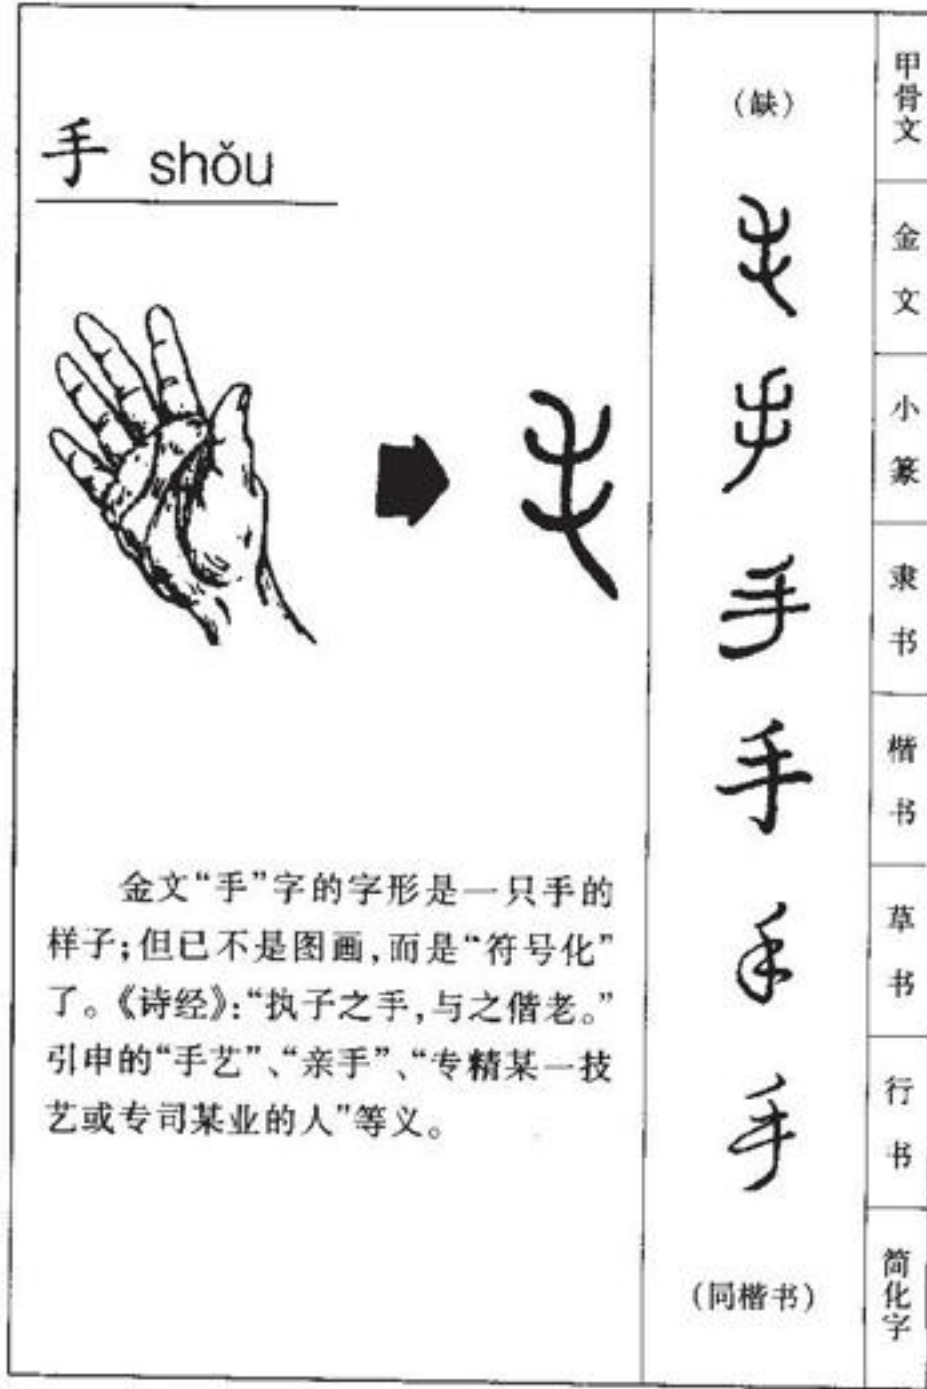 手 shǒu
金文“手”字的字形是一只手的
样子；但已不是图画，而是“符号化”
了。《诗经》：“执子之手，与之偕老。”
引申的“手艺”、“亲手”、“专精某一技
艺或专司某业的人”等义。
（缺）
甲骨文
手
金文
手
小篆
手
隶书
手
楷书
手
草书
手
行书
（同楷书）
简化字